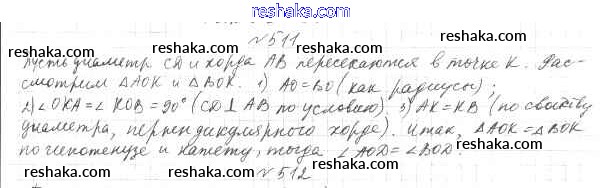 reshaka.com
№511
reshaka.com reshaka.com reshaka.com
Пусть диаметр CD и хорда AB пересекаются в точке K. Рас-
смотрим ΔAOK и ΔBOK. 1) AO=BO (как радиусы);
2) ∠OKA=∠KOB=90° (CD⊥AB по условию). 3) AK=KB (по свойству
reshaka.com reshaka.com reshaka.com
диаметра, перпендикулярного хорде). Итак, ΔAOK=ΔBOK
по гипотенузе и катету, тогда ∠AOD=∠BOD.
reshaka.com reshaka.com reshaka.com
№512